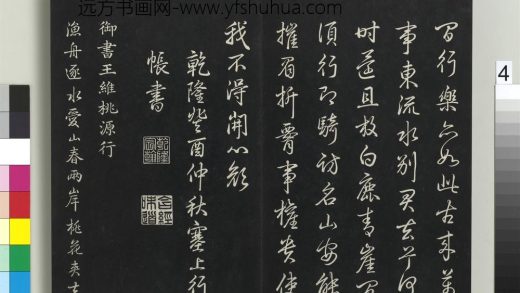 远方书画网- www.yfshuhua.com
4
間行樂亦如此古來萬
事東流水別君去兮何
時還且放白鹿青崖間
須行即騎訪名山安能
摧眉折腰事權貴使
我不得開心顏
乾隆癸酉仲秋塞上行
帳書
乾隆宸翰
含經味道
御書王維桃源行
漁舟逐水愛山春兩岸桃花夾去